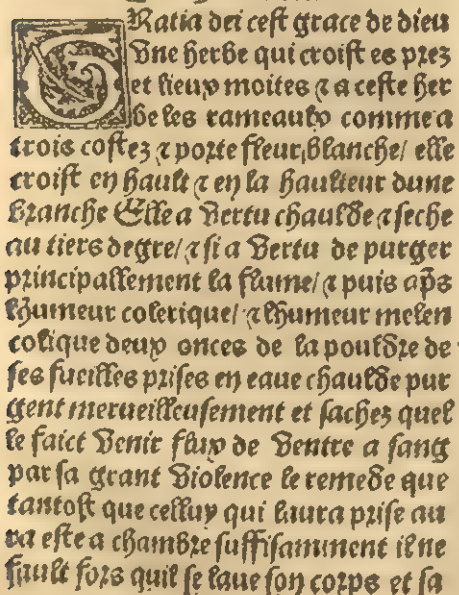 GRatia dei cest grace de dieu
Une herbe qui croist es prez
et lieux moites ⁊ a ceste her
be les rameaulx comme a
trois costez ⁊ porte fleur blanche/ elle
croist en hault ⁊ en la haulteur dune
branche Elle a vertu chaulde ⁊ seche
au tiers degre/ ⁊ si a vertu de purger
principallement la flume/ ⁊ puis aps̄
lhumeur colerique/ ⁊ lhumeur melen
colique deux onces de la pouldre de
ses fueilles prises en eaue chaulde pur
gent merueilleusement et sachez quel
le faict venir flux de ventre a sang
par sa grant violence le remede que
tantost que celluy qui laura prise au
ra este a chambre suffisamment il ne
fault fors quil se laue son corps et sa